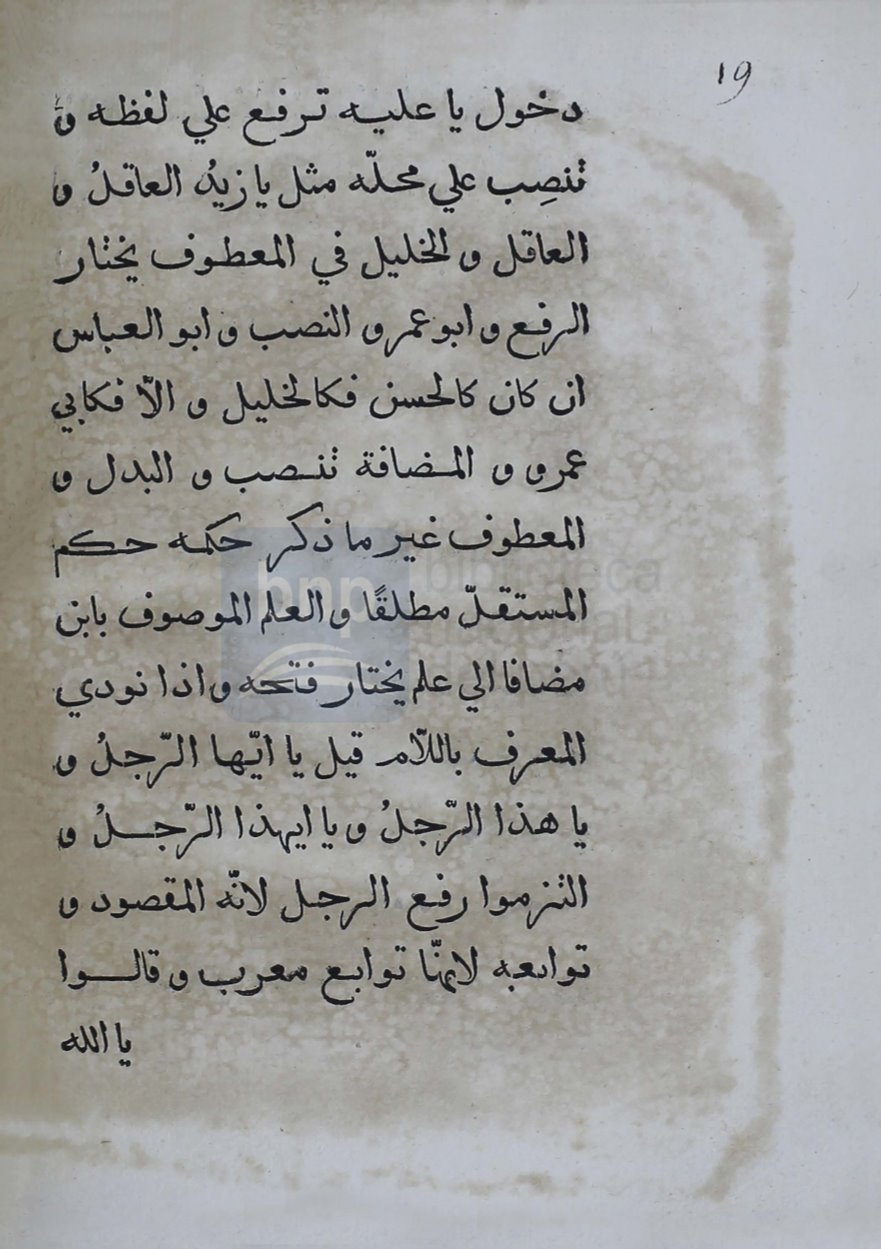 19
دخول يا عليه ترفع علي لفظه و
تنصِب علي محلّه مثل يا زيدُ العاقلُ و
العاقل و الخليل في المعطوف يختار
الرفع و ابو عمرو النصب و ابو العباس
ان كان كالحسن فكالخليل و الّا فكابي
عمرو و المضافة تنصب و البدل و
المعطوف غير ما ذكر حكمه حكم
المستقلّ مطلقًا و العلم الموصوف بابن
مضافا الي علم يختار فتحه و اذا نودي
المعرف باللّام قيل يا ايّها الرّجلُ و
يا هذا الرّجلُ و يا ايهذا الرّجلُ و
التزموا رفع الرجل لانّه المقصود و
توابعه لانهّا توابع معرب و قالوا
يا الله
bnp biblioteca nacional